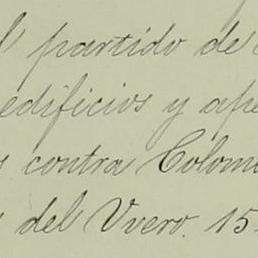 l partido de
edificios y ape
s contra Colom
s del Uvero. 15